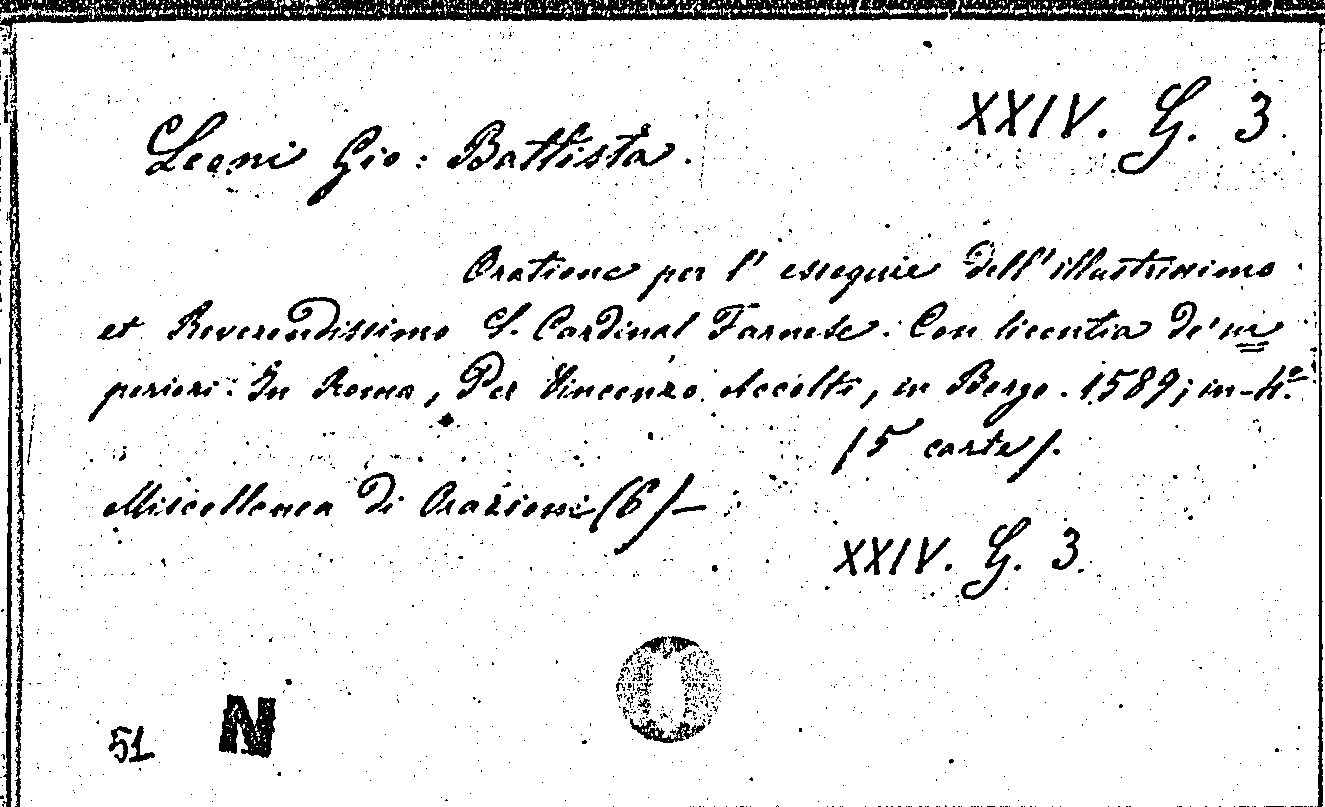 XXIV. G. 3.
Leoni Gio: Battista.
Oratione per l' essequie dell'illustrissimo
et Reverendissimo S. Cardinal Farnese. Con licentia de' su
periori. In Roma, Per Vincenzo Accolti, in Borgo. 1589; in-4.º
(5 carte).
Miscellanea di Orazioni (6) –
XXIV. G. 3.
51 N